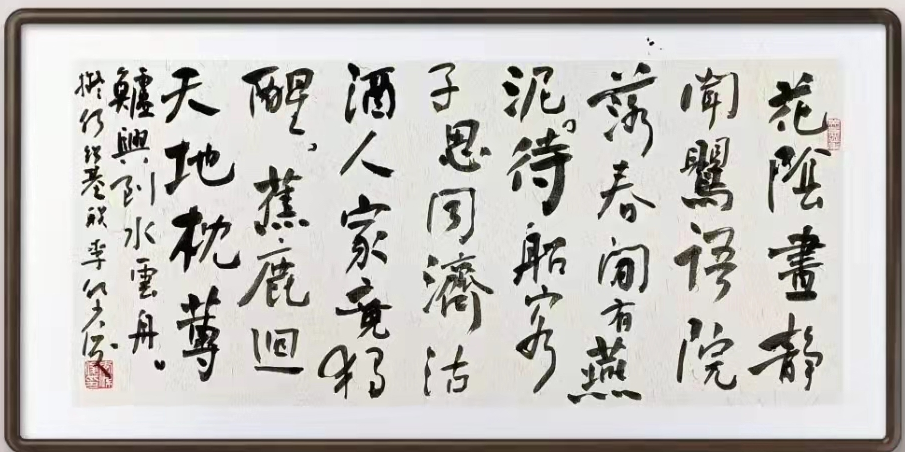 花陰晝靜
聞鸎語院
落春閒有燕
泥待船客
子思同濟沽
酒人家竟獨
醒蕉鹿迴
天地枕蓴
鱸興到水雲舟
擬何紹基